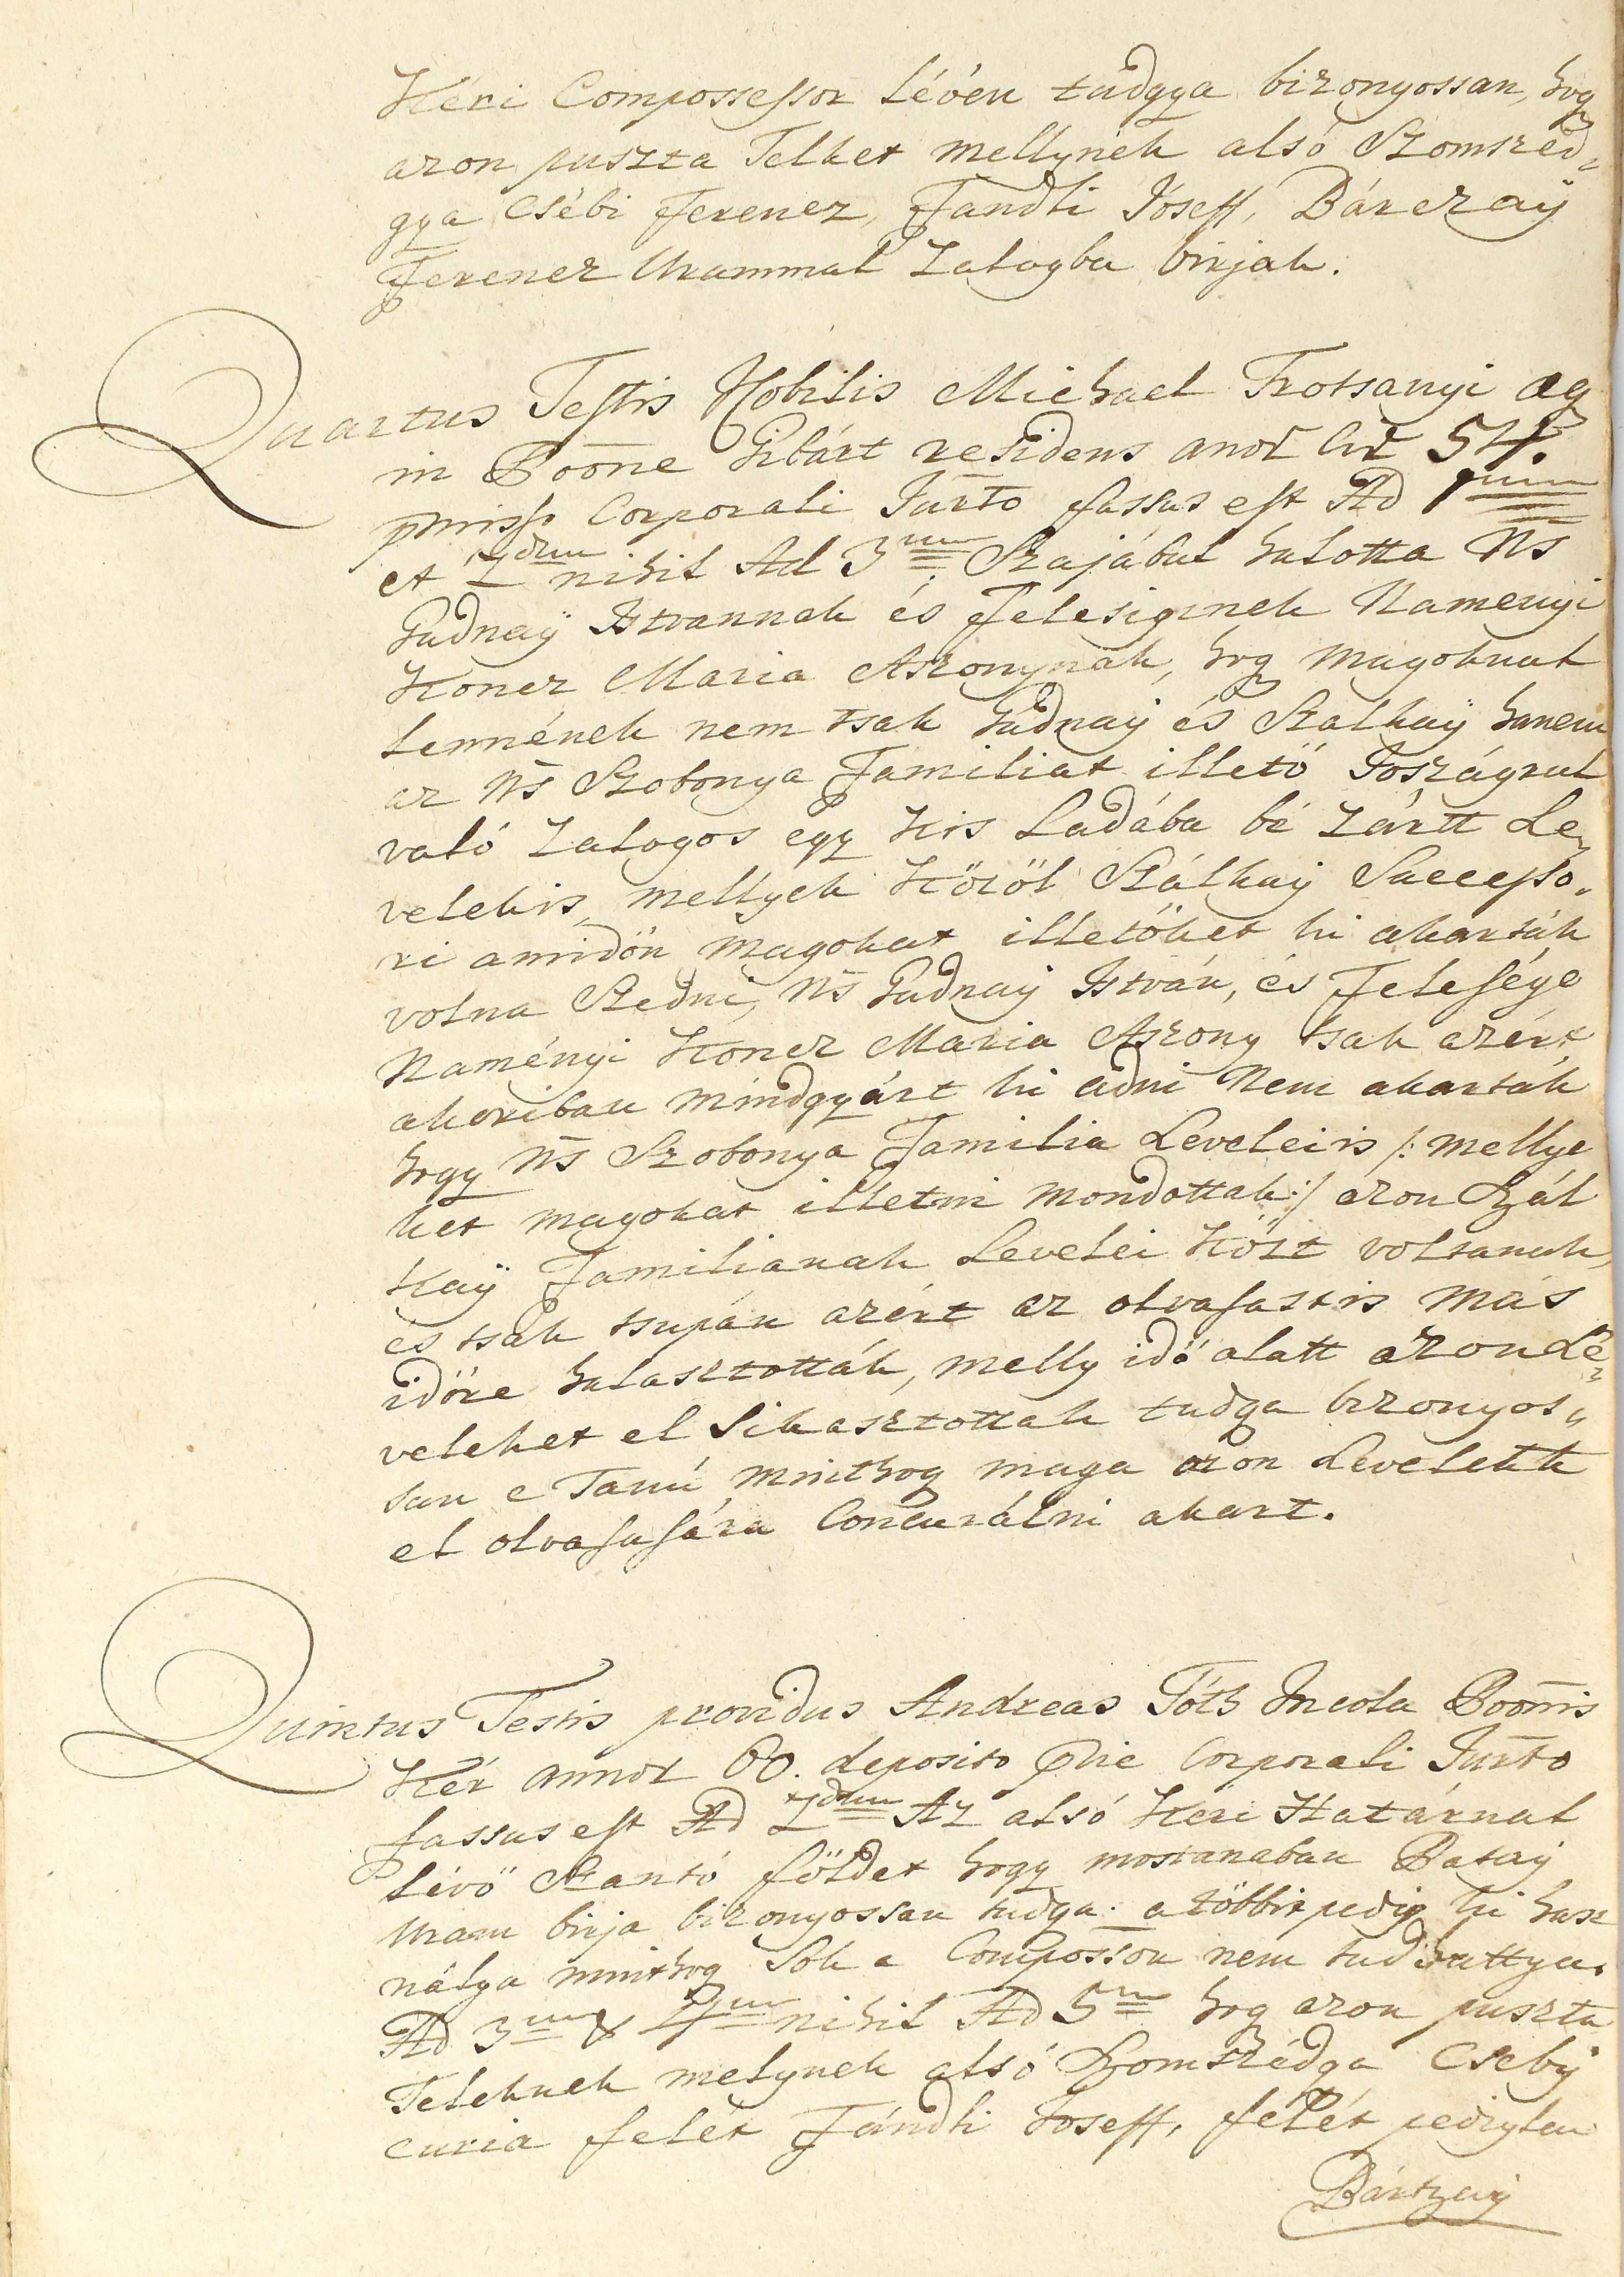 Kéri Compossessor lévén tudgya bizonyossan, hog
azon puszta Telket mellynek alsó Szomszéd„
gya Csébi Ferencz, Fándli Jóseff, Bárczaÿ
Ferencz Urammal Zalogba birjak.
Quartus Testis Nobilis Michael Trotsanyi Ag
in Poōne Gibárt residens anor̄ cir̄ 54.
pmiss. Corporali Jur̄to fassus est Ad 1mum
et 2dum nihil Ad 3um Szajábul halotta Ns
Gudnaÿ Istvannak és Felesiginek Namenyi
Koncz Maria Aszonynak, hog magoknal
lennének nem tsak Gudnaÿ és Szalkaÿ hanem
az Ns̄ Szobonya Familiat illető Joszágrul
való Zalogos egy kis Ladába bé zártt Le„
velekis, mellyek közöl Szálkaÿ Successo„
ri amidőn magokat illetőket ki akarták
volna Szedni, Ns̄ Gudnaÿ István, és Felesége
Naményi Koncz Maria Aszony tsak azért
akoriban mindgyárt ki adni Nem akarták
hogy Ns̄ Szobonya Familia Leveleiis /: mellye
ket magokat illetni mondottak :/ azon Szál
kaÿ Familianak Levelei közt voltanak,
és tsak tsupán azért az olvasastis más
időre halasztották, melly idő alatt azon Le„
veleket el Sikasztottak tudga bizonyos„
san e Tanú minthog maga azon Levelekk
el olvasására Concurálni akart.
Quintus Testis providus Andreas Tóth Incola Poōnis
Kér annor 60. deposito pvie Corporali Jur̄to
fassus est Ad 2dum Az alsó Keri Határnal
lévő Szantó földet hogy mostanaban Bataÿ
Uram birja bizonyossan tudga. a többit pedig ki hasz
nálya minthog Sok a Composson nem tudhattya.
Ad 3um & 4um nihil Ad 5m hog azon puszta
Teleknek melynek alsó Szomszédga Csebÿ
curia felét Fándli Joseff, felét pediglen
Bártzaÿ